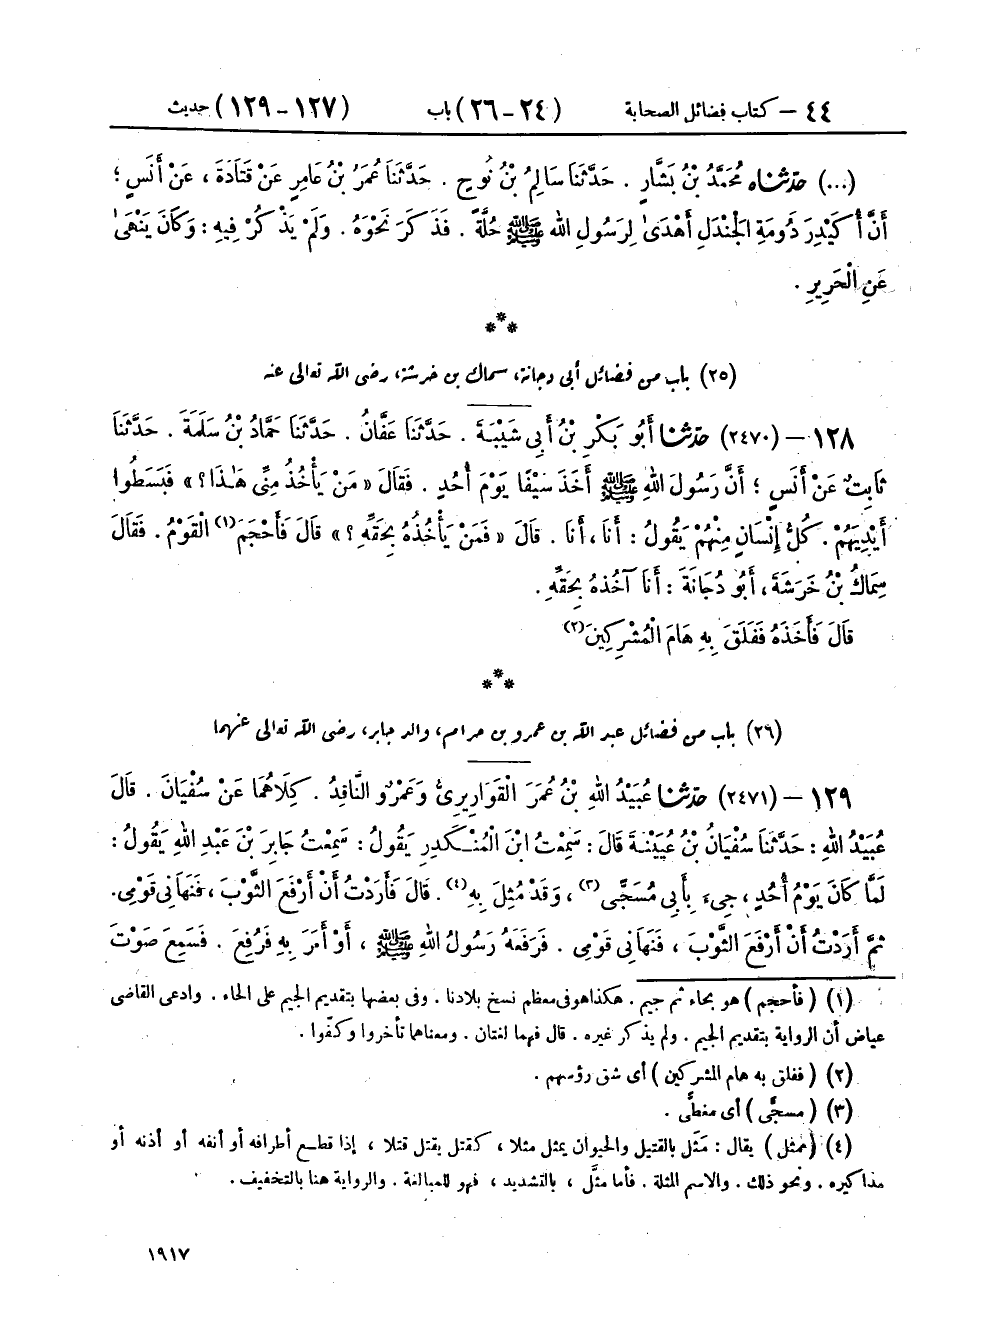 ٤٤ – كتاب فضائل الصحابة (٢٤ - ٢٦) باب (١٢٧ - ١٢٩) حديث
(...) حَدَّثَنَاه مُحَمَّدُ بْنُ بَشَّارٍ . حَدَّثَنَا سَالِمُ بْنُ نُوحٍ . حَدَّثَنَا عُمَرُ بْنُ عَامِرٍ عَنْ قَتَادَةَ ، عَنْ أَنَسٍ ؛
أَنَّ أُكَيْدِرَ دُومَةِ الْجَنْدَلِ أَهْدَىٰ لِرَسُولِ اللهِ ﷺ حُلَّةً . فَذَكَرَ نَحْوَهُ . وَلَمْ يَذْكُرْ فِيهِ : وَكَانَ يَنْهَىٰ
عَنِ الْحَرِيرِ .
***
(٢٥) باب من فضائل أبى دجانة، سماك بن خرشة، رضى الله تعالى عنه
١٢٨ – (٢٤٧٠) حَدَّثَنَا أَبُو بَكْرِ بْنُ أَبِى شَيْبَةَ . حَدَّثَنَا عَفَّانُ . حَدَّثَنَا حَمَّادُ بْنُ سَلَمَةَ . حَدَّثَنَا
ثَابِتٌ عَنْ أَنَسٍ ؛ أَنَّ رَسُولَ اللهِ ﷺ أَخَذَ سَيْفًا يَوْمَ أُحُدٍ . فَقَالَ « مَنْ يَأْخُذُ مِنِّى هَـٰذَا ؟ » فَبَسَطُوا
أَيْدِيَهُمْ . كُلُّ إِنْسَانٍ مِنْهُمْ يَقُولُ : أَنَا ، أَنَا . قَالَ « فَمَنْ يَأْخُذُهُ بِحَقِّهِ ؟ » قَالَ فَأَحْجَمَ (١) الْقَوْمُ . فَقَالَ
سِمَاكُ بْنُ خَرَشَةَ ، أَبُو دُجَانَةَ : أَنَا آخُذُهُ بِحَقِّهِ .
قَالَ فَأَخَذَهُ فَفَلَقَ بِهِ هَامَ الْمُشْرِكِينَ (٢)
***
(٢٦) باب من فضائل عبد الله بن عمرو بن حرام، والد جابر، رضى الله تعالى عنهما
١٢٩ – (٢٤٧١) حَدَّثَنَا عُبَيْدُ اللهِ بْنُ عُمَرَ الْقَوَارِيرِىُّ وَعَمْرٌو النَّاقِدُ . كِلَاهُمَا عَنْ سُفْيَانَ . قَالَ
عُبَيْدُ اللهِ : حَدَّثَنَا سُفْيَانُ بْنُ عُيَيْنَةَ قَالَ : سَمِعْتُ ابْنَ الْمُنْكَدِرِ يَقُولُ : سَمِعْتُ جَابِرَ بْنَ عَبْدِ اللهِ يَقُولُ :
لَمَّا كَانَ يَوْمُ أُحُدٍ ، جِىءَ بِأَبِى مُسَجًّى (٣) ، وَقَدْ مُثِلَ بِهِ (٤) . قَالَ فَأَرَدْتُ أَنْ أَرْفَعَ الثَّوْبَ ، فَنَهَانِى قَوْمِى .
ثُمَّ أَرَدْتُ أَنْ أَرْفَعَ الثَّوْبَ ، فَنَهَانِى قَوْمِى . فَرَفَعَهُ رَسُولُ اللهِ ﷺ ، أَوْ أَمَرَ بِهِ فَرُفِعَ . فَسَمِعَ صَوْتَ
(١) ( فأحجم ) هو بحاء ثم جيم . هكذا هو فى معظم نسخ بلادنا . وفى بعضها بتقديم الجيم على الحاء . وادعى القاضى
عياض أن الرواية بتقديم الجيم . ولم يذكر غيره . قال فهما لغتان . ومعناهما تأخروا وكفّوا .
(٢) ( ففلق به هام المشركين ) أى شق رؤسهم .
(٣) ( مسجًّى ) أى مغطًّى .
(٤) ( مُثل ) يقال : مَثَل بالقتيل والحيوان يمثل مثلا ، كقتل يقتل قتلا ، إذا قطع أطرافه أو أنفه أو أذنه أو
مذاكيره . ونحو ذلك . والاسم المثلة . فأما مثَّل ، بالتشديد ، فهو للمبالغة . والرواية هنا بالتخفيف .
١٩١٧